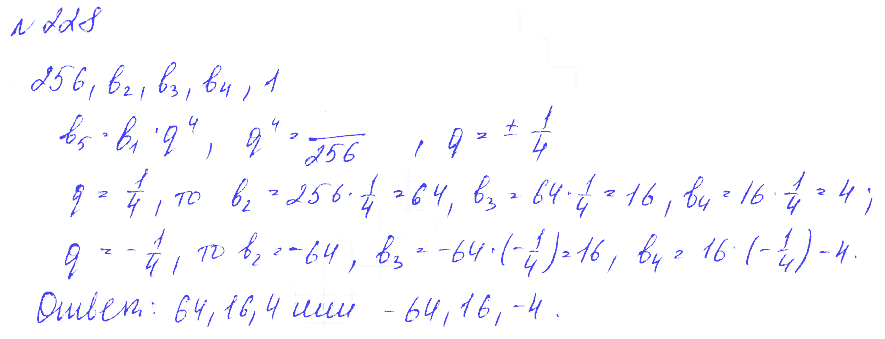 № 228
256, b₂, b₃, b₄, 1
b₅ = b₁ · q⁴, q⁴ = /256, q = ± 1/4
q = 1/4, то b₂ = 256 · 1/4 = 64, b₃ = 64 · 1/4 = 16, b₄ = 16 · 1/4 = 4;
q = -1/4, то b₂ = -64, b₃ = -64 · (-1/4) = 16, b₄ = 16 · (-1/4) - 4.
Ответ: 64, 16, 4 или -64, 16, -4.